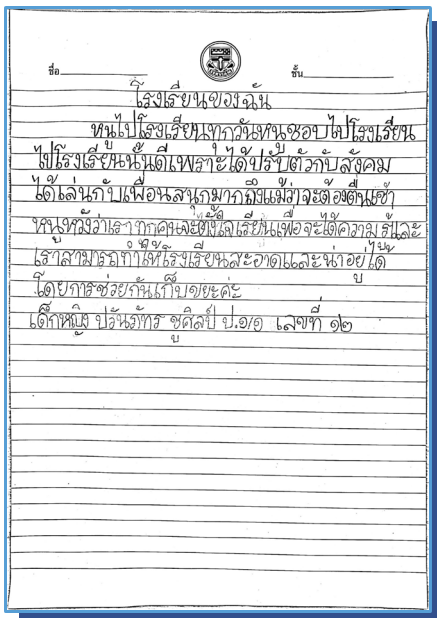 ชื่อ
ชั้น
โรงเรียนของฉัน
หนูไปโรงเรียนทุกวันหนูชอบไปโรงเรียน
ไปโรงเรียนนั้นดีเพราะได้ปรับตัวกับสังคม
ได้เล่นกับเพื่อนสนุกมากถึงแม้ว่าจะต้องตื่นเช้า
หนูหวังว่าเราทุกคนจะตั้งใจเรียนเพื่อจะได้ความรู้และ
เราสามารถทำให้โรงเรียนสะอาดและน่าอยู่ได้
โดยการช่วยกันเก็บขยะค่ะ
เด็กหญิง ปวันภัทร ชูศิลป์ ป.๑/๑ เลขที่ ๑๒